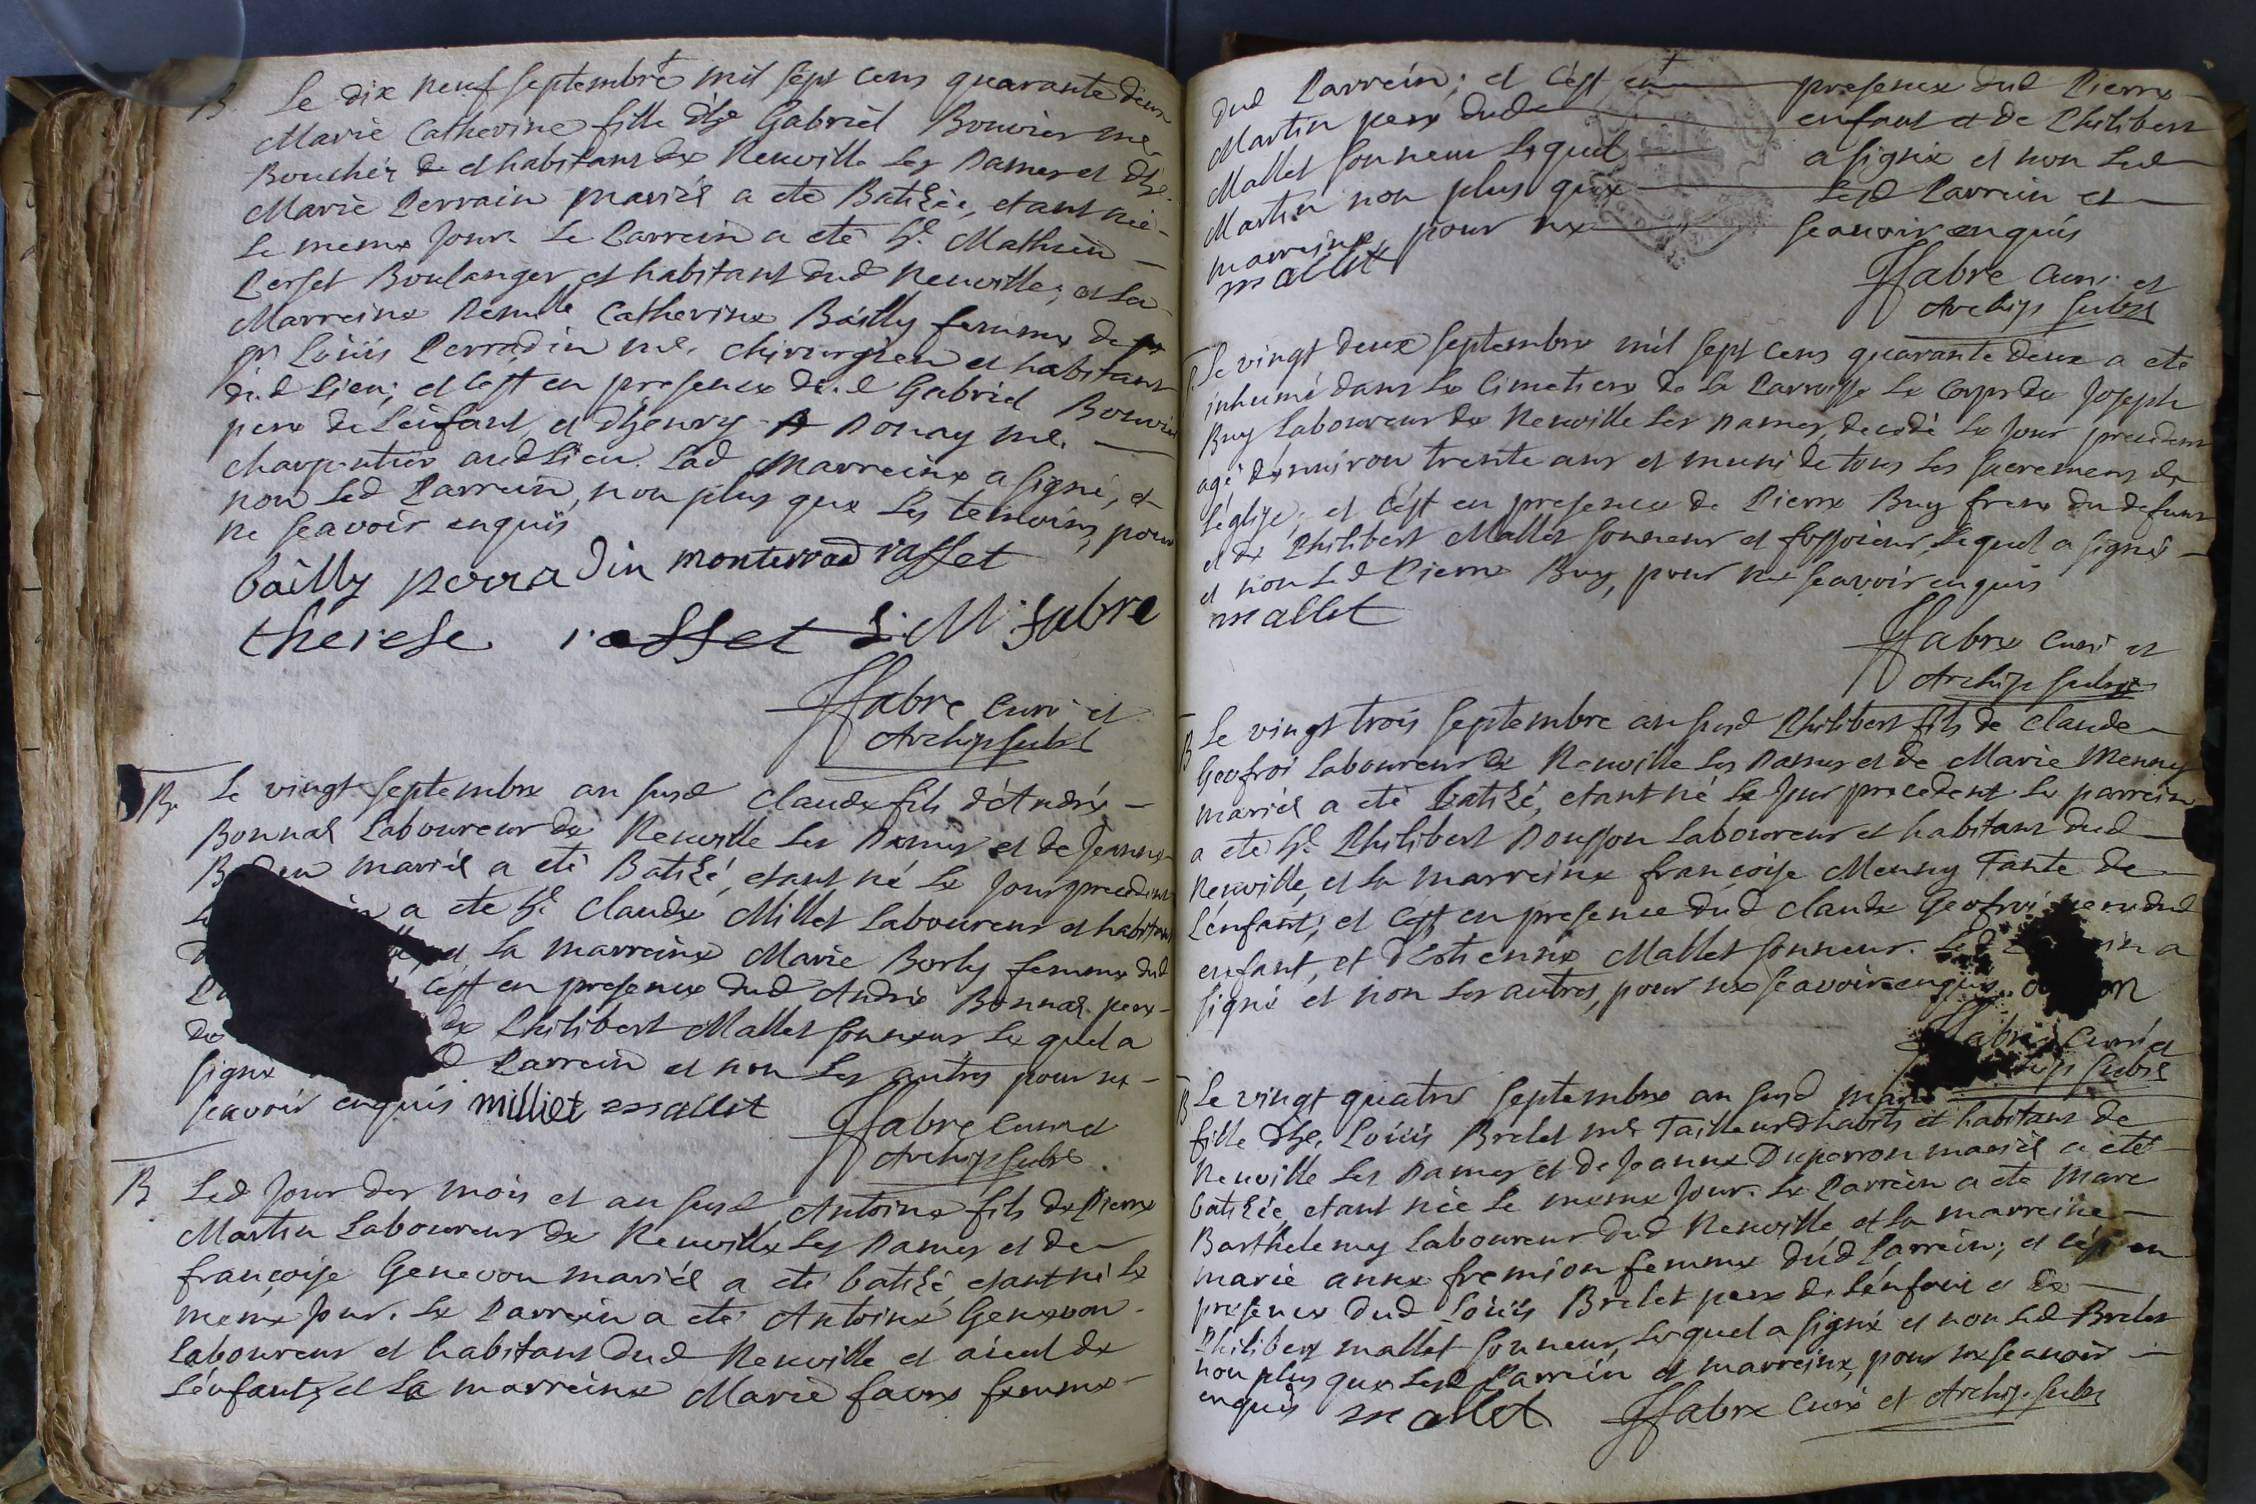 B. Le dix neuf septembre mil sept cens quarante deux
Marie Catherine fille d'he Gabriel Bouvier me
Boucher de et habitant de Neuville les Dames et d'he
Marie Perrain mariés a eté Batisée, etant née
le meme jour. Le Parrein a eté hc. Mathieu
Perset Boulanger et habitant dud Neuville; et la
Marreine Demlle Catherine Bailly femme de
Sr Loüis Perradin me. chirurgien et habitant
dud lieu; et c'est en presence dud Gabriel Bouvier
pere de L'enfant, et d'henry Donay me.
charpentier aud lieu. Lad Marreine a signé, et
non led Parrein, non plus que les temoins, pour
ne scavoir enquis
bailly perradin monterrad rasset
therese rasset S. M. fabre
Ffabre curé et
Archip subst
B. Le vingt septembre an susd Claude fils d'André
Bonnas Laboureur de Neuville les Dames et de Jeanne
mariés a eté Batisé, etant né le jour precedent
a eté hc. Claude Millet Laboureur et habitant
et la marreine Marie Borly femme dud
c'est en presence dud André Bonnas pere
de Philibert Mallet sonneur le quel a
signé Parrein et non les autres pour ne
scavoir enquis milliet mallet
Ffabre curé et
Archip subst
B Led jour des mois et an susd Antoine fils de Pierre
Martin Laboureur de Neuville les Dames et de
françoise Genevon mariés a eté batisé, etant né le
meme jour. Le Parrein a eté Antoine Genevon
Laboureur et habitant dud Neuville et aieul de
L'enfant, et la marreine Marie favre femme
dud Parrein; et c'est en presence dud Pierre
Martin pere dud enfant et de Philibert
Mallet sonneur lequel a signé et non led
Martin non plus que lesd Parrein et
marreine pour ne scavoir enquis
mallet
Ffabre curé et
Archip subst
Le vingt deux septembre mil sept cens quarante deux a eté
inhumé dans le Cimetiere de la Parroisse le corps de Joseph
Buy Laboureur de Neuville les Dames, decedé le jour precedent
agé d'environ trente ans et muni de tous les sacremens de
L'église; et c'est en presence de Pierre Buy frere du defunt
et de Philibert Mallet sonneur et fossoieur, lequel a signé
et non led Pierre Buy, pour ne scavoir enquis
mallet
Ffabre curé et
Archip subst
B Le vingt trois septembre an susd Philibert fils de Claude
Geofroi Laboureur de Neuville les Dames et de Marie Menny
mariés a eté batisé, etant né le jour precedent le parrein
a eté hc. Philibert Dousson Laboureur et habitant dud
Neuville, et la marreine françoise Menny Tante de
L'enfant; et c'est en presence dud Claude Geofroi pere dud
enfant, et d'Estienne Mallet sonneur. Led a
signé et non les autres, pour ne scavoir enquis
Ffabre curé et
subst
B Le vingt quatre septembre an susd
fille d'he Loüis Brelet me Tailleur d'habits et habitant de
Neuville les Dames et de Jeanne Duperron mariés a eté
batisée, etant née le meme jour. Le Parrein a eté Marc
Barthelemy Laboureur dud Neuville et la marreine
marie anne fremion femme dud Parrein; et c'est en
presence dud Loüis Brelet pere de L'enfant et de
Philibert mallet sonneur, lequel a signé et non led Brelet
non plus que lesd Parrein et marreine, pour ne scavoir
enquis mallet Ffabre curé et Archip. subst